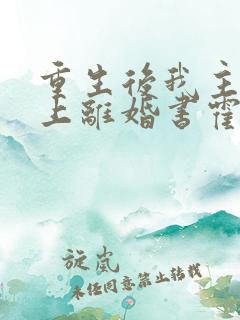 重生後我主
上離婚書霍
旋嵐
未任同意禁止转载